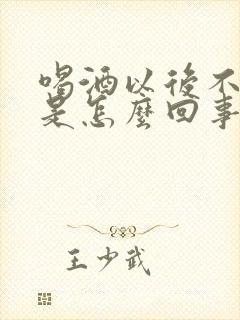 喝酒以後不
是怎麼回事
王少武